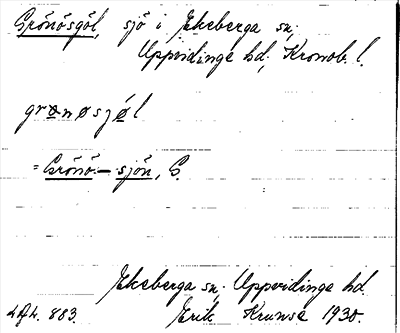 Grönösgöl, sjö i Ekeberga sn,
Uppvidinge hd, Kronob. l.
grønøsjø´l
= Grönö-sjön, G.
Ekeberga sn, Uppvidinge hd.
883. Erik Krunse 1930.